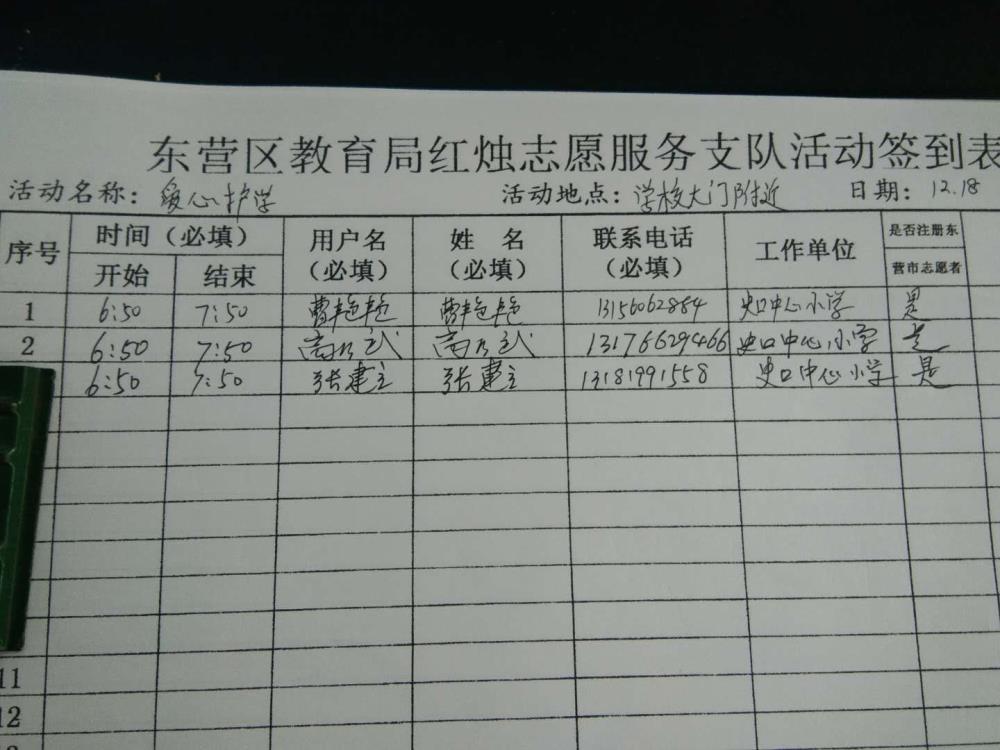 东营区教育局红烛志愿服务支队活动签到表
活动名称：爱心护学 活动地点：学校大门附近 日期：12.18
序号 时间（必填） 用户名（必填） 姓 名（必填） 联系电话（必填） 工作单位 是否注册东营市志愿者
开始 结束
1 6:50 7:50 曹艳艳 曹艳艳 13156062884 史口中心小学 是
2 6:50 7:50 13176629466 史口中心小学 是
6:50 7:50 张建立 张建立 13181991558 史口中心小学 是
11
12